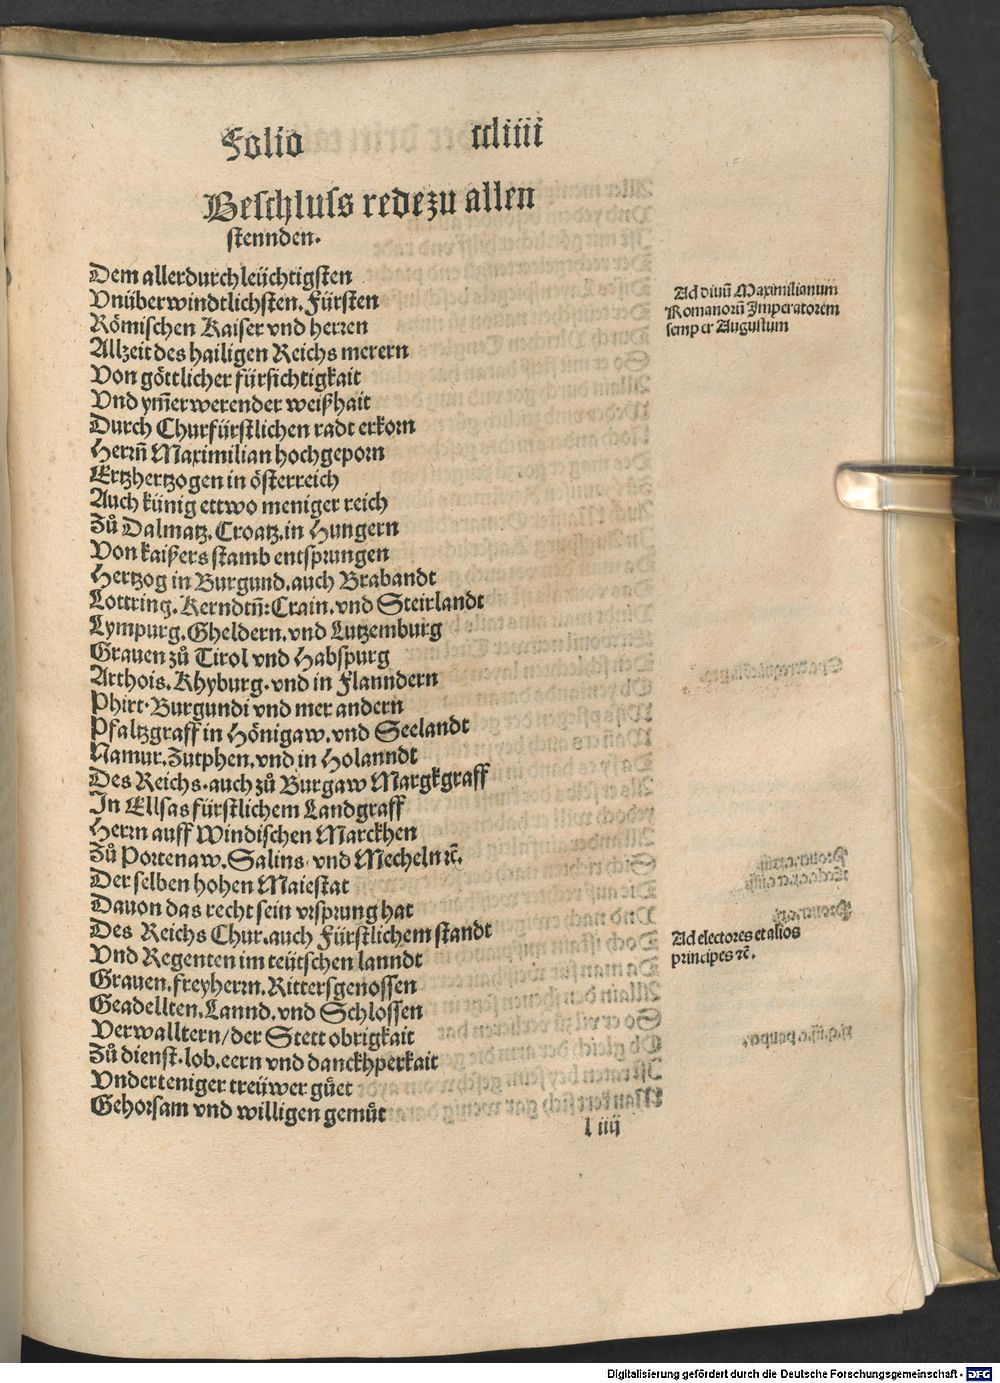 Folio ccliiii
Beschluss rede zu allen
stennden.
Dem allerdurchleüchtigsten
Vnüberwindtlichsten. Fürsten
Römischen Kaiser vnd herren
Allzeit des hailigen Reichs merern
Von göttlicher fürsichtigkait
Vnd ym̃erwerender weißhait
Durch Churfürstlichen radt erkorn
Herrn̄ Maximilian hochgeporn
Ertzhertzogen in österreich
Auch künig ettwo meniger reich
Zů Dalmatz. Croatz. in Hungern
Von kaißers stamb entsprungen
Hertzog in Burgund. auch Brabandt
Lottring. Kerndtn̄: Crain. vnd Steirlandt
Lympurg. Gheldern. vnd Lutzemburg
Grauen zů Tirol vnd Habspurg
Arthois. Khyburg. vnd in Flanndern
Phirt. Burgundi vnd mer andern
Pfaltzgraff in Hönigaw. vnd Seelandt
Namur. Zutphen. vnd in Holanndt
Des Reichs. auch zů Burgaw Margkgraff
In Ellsas fürstlichem Landgraff
Herrn auff Windischen Marckhen
Zů Portenaw. Salins. vnd Mecheln ꝛc̄.
Der selben hohen Maiestat
Dauon das recht sein vrsprung hat
Des Reichs Chur. auch Fürstlichem standt
Vnd Regenten im teütschen lanndt
Grauen. freyherrn. Rittersgenossen
Geadellten. Lannd. vnd Schlossen
Verwalltern / der Stett obrigkait
Zů dienst. lob. eern vnd danckhperkait
Vnderteniger treüwer gůet
Gehorsam vnd willigen gemůt
l iiij
Ad diuū Maximilianum
Romanorū Imperatorem
semper Augustum
Ad electores et alios
principes ꝛc̄.
Digitalisierung gefördert durch die Deutsche Forschungsgemeinschaft - DFG